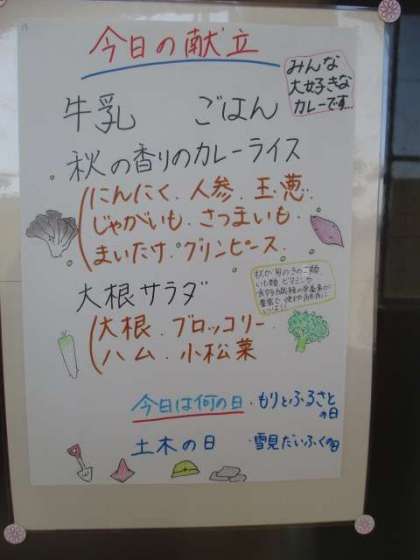 今日の献立
みんな
大好きな
カレーです…
牛乳 ごはん
秋の香りのカレーライス
にんにく．人参．玉葱
じゃがいも．さつまいも．
まいたけ．グリンピース．
大根サラダ
大根．ブロッコリー
ハム．小松菜
今日は何の日・もりとふるさと
の日
土木の日 ・雪見だいふくの日